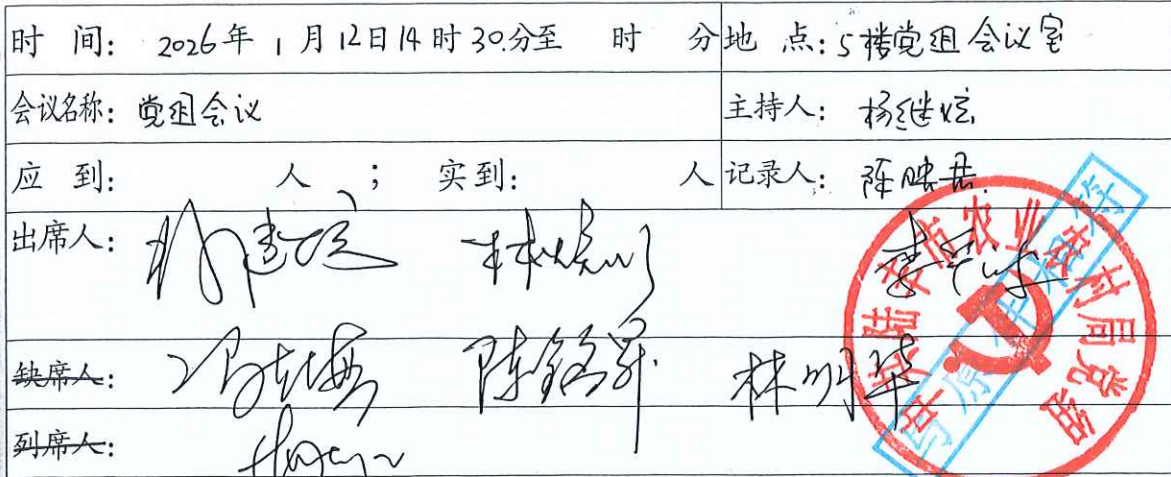 时 间: 2026年 1 月 12日 14 时 30分至 时 分 地 点: 5楼党组会议室
会议名称: 党组会议 主持人: 杨继炫
应 到: 人 ; 实到: 人 记录人: 陈映
出席人:
缺席人: 陈铭昇 林明华
列席人:
中共陆丰市农业农村局党组
与原件相符